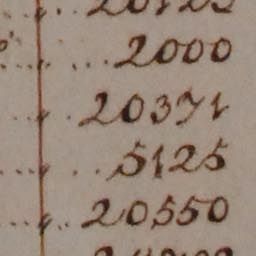 2000
20371
5125
20550